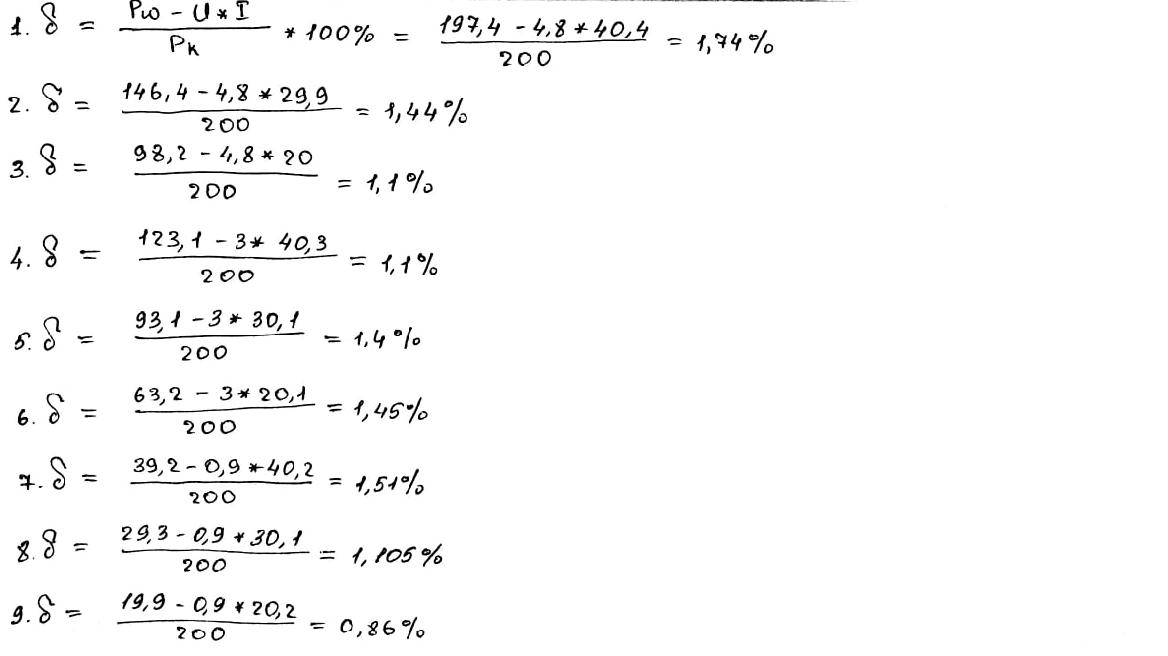 1. δ = (Pω - U * I) / Pк * 100% = (197,4 - 4,8 * 40,4) / 200 = 1,74%
2. δ = (146,4 - 4,8 * 29,9) / 200 = 1,44%
3. δ = (98,2 - 4,8 * 20) / 200 = 1,1%
4. δ = (123,1 - 3 * 40,3) / 200 = 1,1%
5. δ = (93,1 - 3 * 30,1) / 200 = 1,4%
6. δ = (63,2 - 3 * 20,1) / 200 = 1,45%
7. δ = (39,2 - 0,9 * 40,2) / 200 = 1,51%
8. δ = (29,3 - 0,9 * 30,1) / 200 = 1,105%
9. δ = (19,9 - 0,9 * 20,2) / 200 = 0,86%